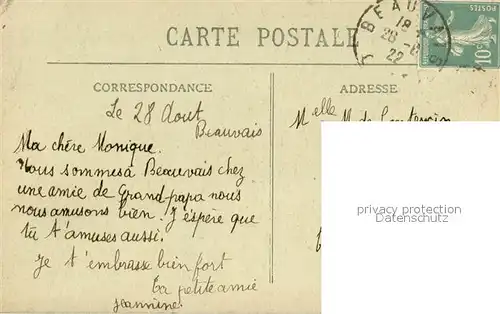 CARTE POSTALE
BEAUVAIS
18
26 -8
22
POSTES
10c
CORRESPONDANCE
ADRESSE
Le 28 Aout
Beauvais
Melle M de
Ma chére Monique.
Nous sommes à Beauvais chez
une amie de Grand-papa nous
nous amusons bien. J'éspére que
tu t'amuses aussi.
Je t'embrasse bien fort
ta petite amie
Jeannine.
privacy protection
Datenschutz